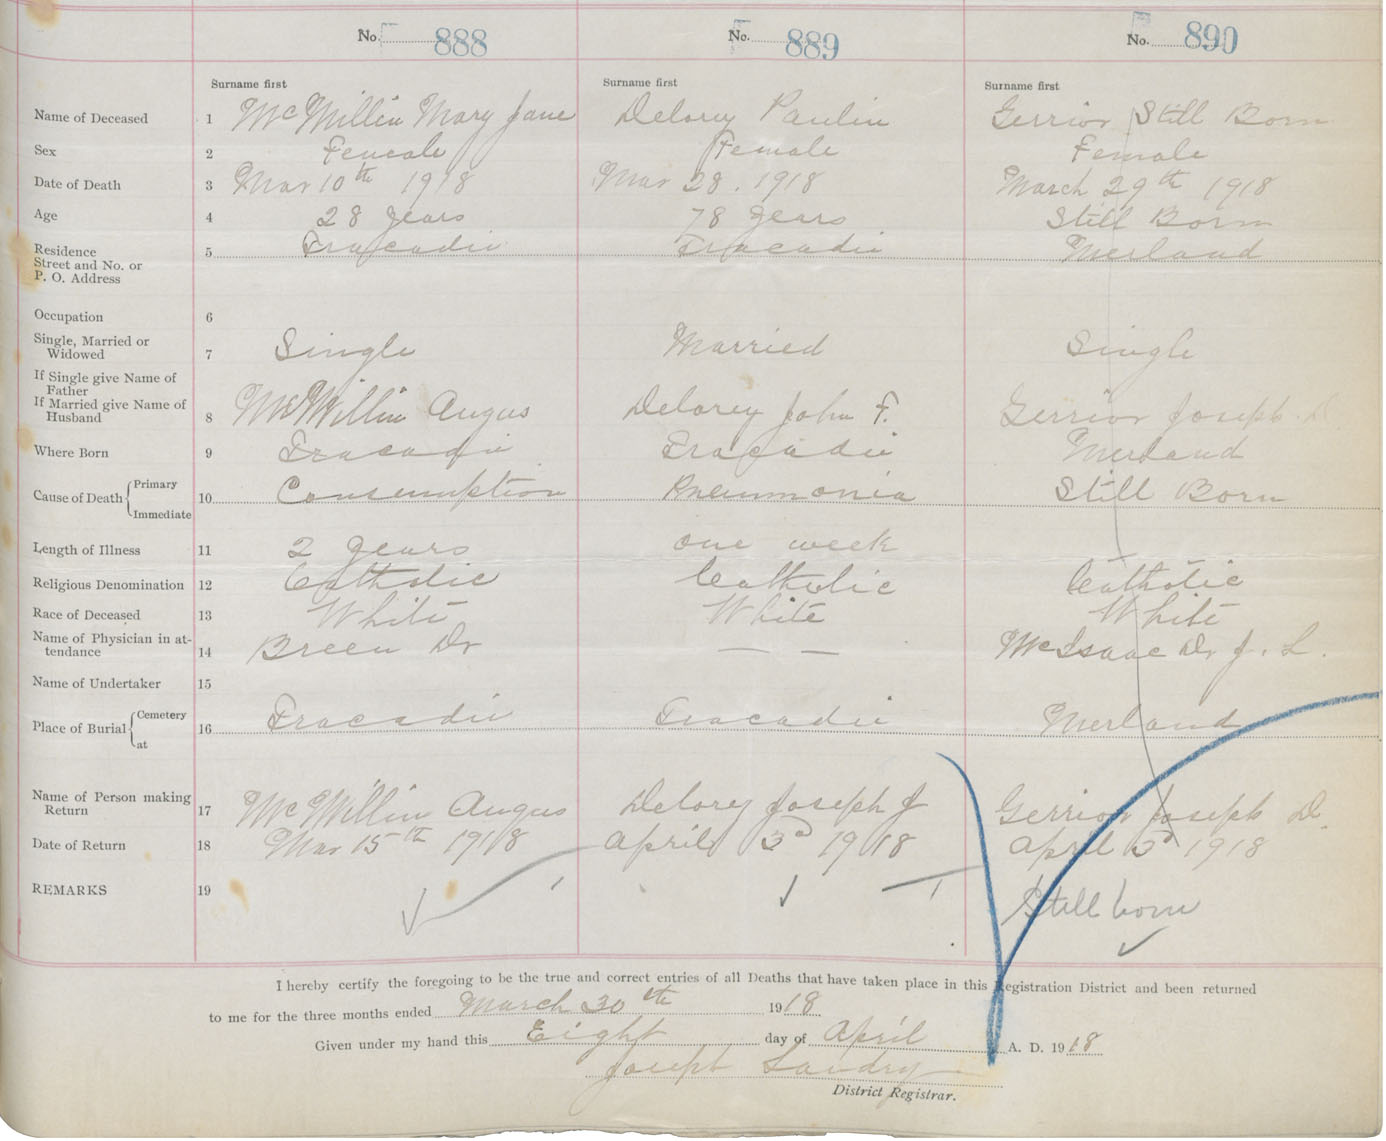 No. 888 No. 889 No. 890
Surname first Surname first Surname first
Name of Deceased 1 McMillin Mary Jane Delorey Paulin Gerrior Still Born
Sex 2 Female Female Female
Date of Death 3 Mar 10th 1918 Mar 28. 1918 March 29th 1918
Age 4 28 years 78 years Still Born
Residence 5 Tracadie Tracadie Merland
Street and No. or
P. O. Address
Occupation 6
Single, Married or
Widowed 7 Single Married Single
If Single give Name of
Father
If Married give Name of
Husband 8 McMillin Angus Delorey John F. Gerrior Joseph D
Where Born 9 Tracadie Tracadie Merland
Cause of Death { Primary
10 Consumption Pneumonia Still Born
Immediate
Length of Illness 11 2 years one week
Religious Denomination 12 Catholic Catholic Catholic
Race of Deceased 13 White White White
Name of Physician in at-
tendance 14 Breen Dr — — McIsaac Dr J. L.
Name of Undertaker 15
Place of Burial { Cemetery
16 Tracadie Tracadie Merland
at
Name of Person making
Return 17 McMillin Angus Delory Joseph J Gerrior Joseph D.
Date of Return 18 Mar 15th 1918 April 3d 1918 April 3d 1918
REMARKS 19 Still born
I hereby certify the foregoing to be the true and correct entries of all Deaths that have taken place in this Registration District and been returned
to me for the three months ended March 30th 1918
Given under my hand this Eight day of April A. D. 1918
Joseph Landry
District Registrar.